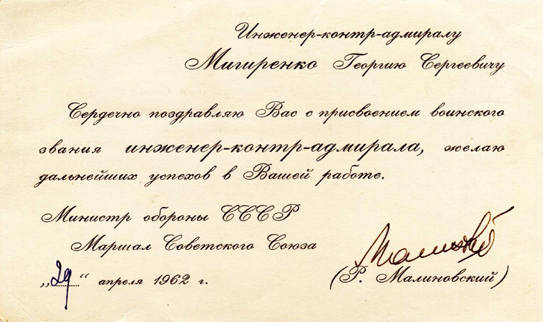 Инженер-контр-адмиралу
Мигиренко Георгию Сергеевичу
Сердечно поздравляю Вас с присвоением воинского
звания инженер-контр-адмирала, желаю
дальнейших успехов в Вашей работе.
Министр обороны СССР
Маршал Советского Союза
„29“ апреля 1962 г.
(Р. Малиновский)